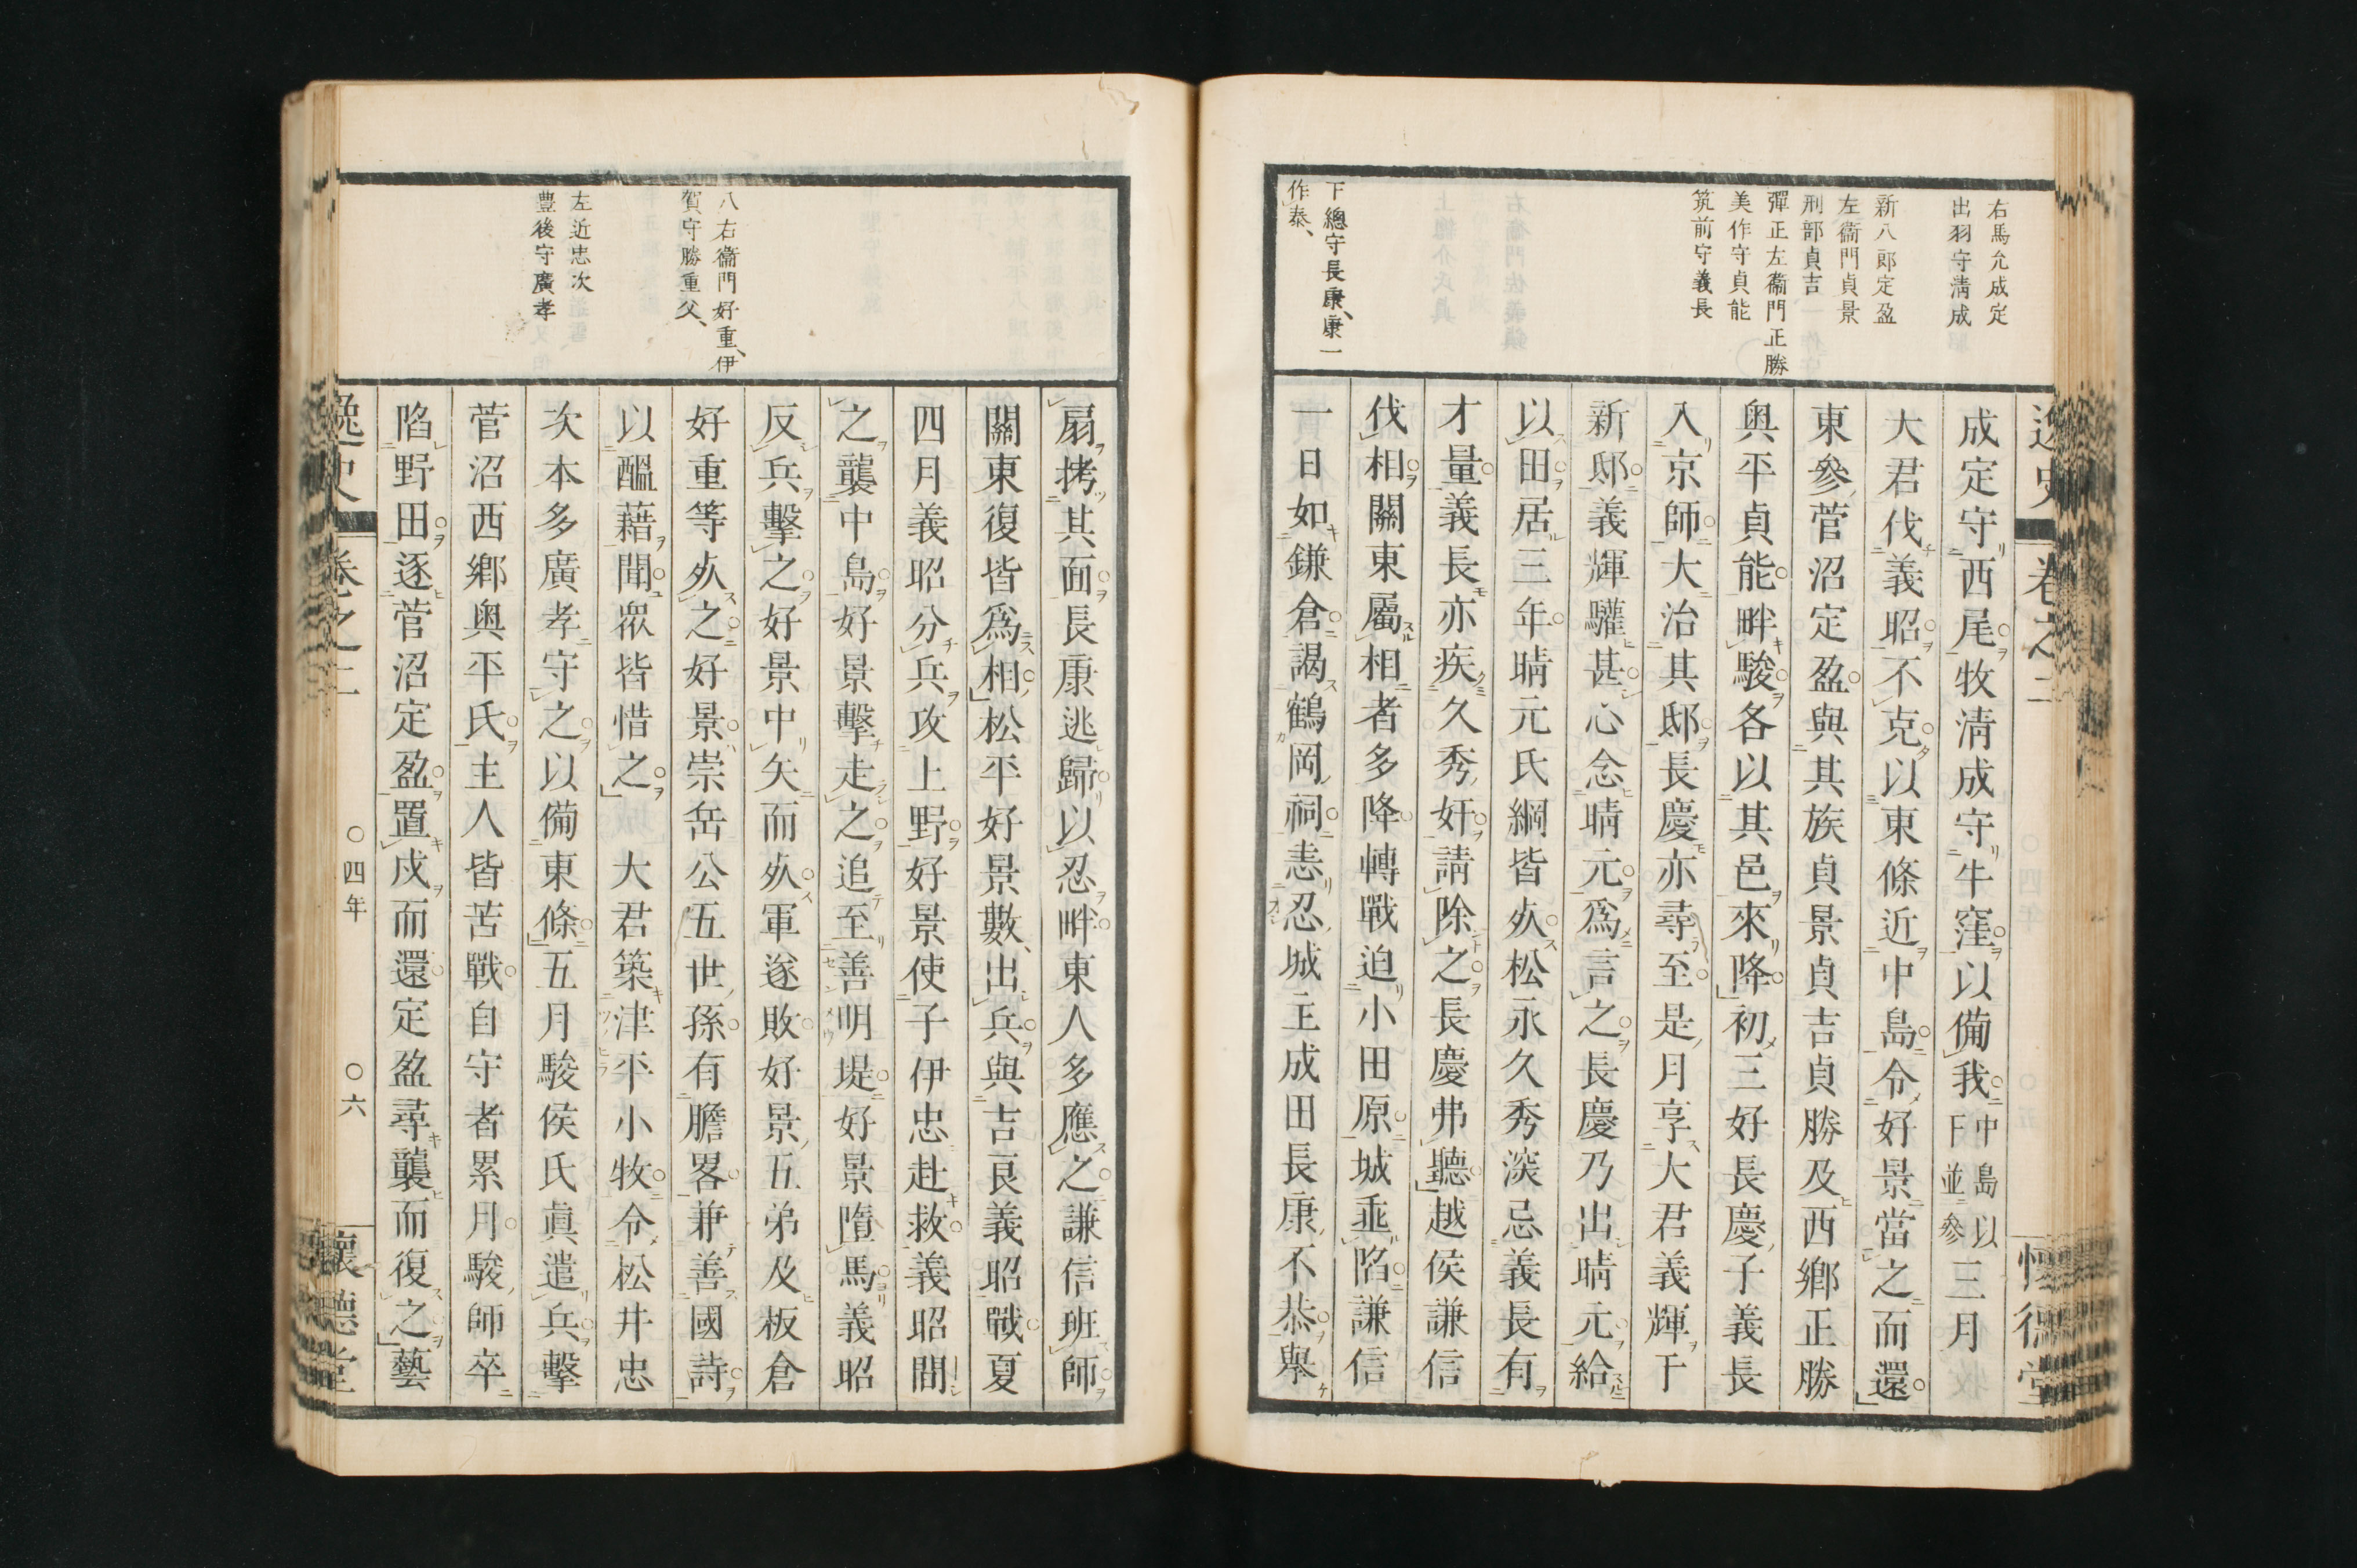 右馬允成定
出羽守淸成
新八郎定盈
左衞門貞景
刑部貞吉
彈正左衞門正勝
美作守貞能
筑前守義長
下總守長康、康一
作泰、
成定守西尾牧淸成守牛窪以備我中島以下並參三月
大君伐義昭不克以東條近中島令好景當之而還
東參菅沼定盈與其族貞景貞吉貞勝及西鄉正勝
奥平貞能畔駿各以其邑來降初三好長慶子義長
入京師大治其邸長慶亦尋至是月享大君義輝于
新邸義輝驩甚心念晴元爲言之長慶乃出晴元給
以田居三年晴元氏綱皆㱙松永久秀淡忌義長有
才量義長亦疾久秀奸請除之長慶弗聽越侯謙信
伐相關東屬相者多降轉戰迫小田原城乖陷謙信
一日如鎌倉謁鶴岡祠恚忍城主成田長康不恭舉
扇拷其面長康逃歸以忍畔東人多應之謙信班師
關東復皆爲相松平好景數出兵與吉良義昭戰夏
四月義昭分兵攻上野好景使子伊忠赴救義昭間
之襲中島好景擊走之追至善明堤好景墮馬義昭
反兵擊之好景中矢而㱙軍遂敗好景五弟及板倉
好重等㱙之好景崇岳公五世孫有膽畧兼善國詩
以醞藉聞眾皆惜之大君築津平小牧令松井忠
次本多廣孝守之以備東條五月駿侯氏眞遣兵擊
菅沼西鄉奥平氏主人皆苦戰自守者累月駿師卒
陷野田逐菅沼定盈置戍而還定盈尋襲而復之藝
八右衞門好重、伊
賀守勝重父、
左近忠次
豊後守廣孝
逸史 卷之二 四年 六 懷德堂